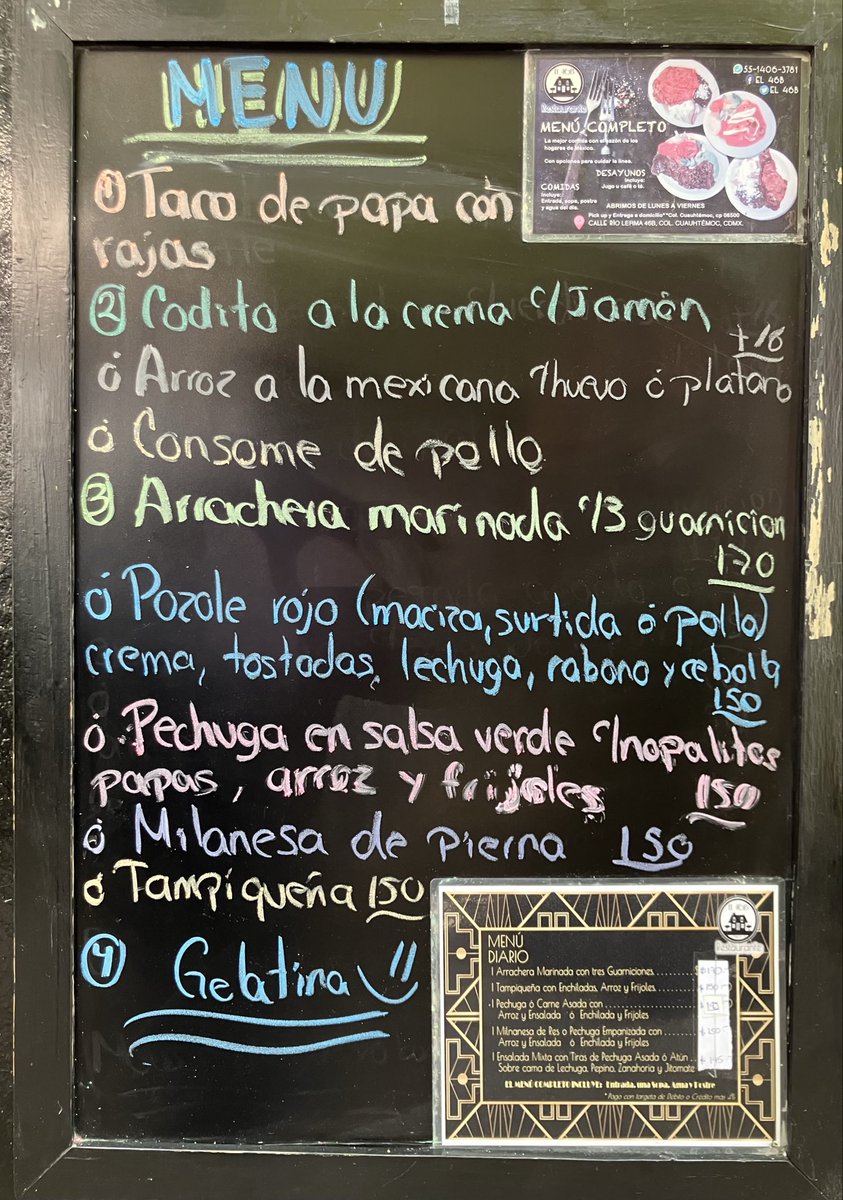 MENU
① Taco de papa con
rajas
② Codito a la crema c/Jamón
+18
ó Arroz a la mexicana c/huevo ó platano
ó Consome de pollo
③ Arrachera marinada c/3 guarnicion
170
ó Pozole rojo (maciza, surtida ó pollo)
crema, tostadas, lechuga, rabano y cebolla
150
ó Pechuga en salsa verde c/nopalitos
papas, arroz y frijoles 150
ó Milanesa de pierna 150
ó Tampiqueña 150
④ Gelatina
El 46B
Restaurante
55-1406-3781
EL 46B
EL 46B
MENÚ COMPLETO
La mejor comida con el sazón de los
hogares de México.
Con opciones para cuidar la línea.
DESAYUNOS
Incluye:
Jugo u café o té.
COMIDAS
Incluye:
Entrada, sopa, postre
y agua del día.
ABRIMOS DE LUNES A VIERNES
Pick up y Entrega a domicilio**Col. Cuauhtémoc, cp 06500
CALLE RÍO LERMA 46B, COL. CUAUHTÉMOC, CDMX.
El 46B
Restaurante
MENÚ
DIARIO
1 Arrachera Marinada con tres Guarniciones
1 Tampiqueña con Enchiladas, Arroz y Frijoles
1 Pechuga ó Carne Asada con
Arroz y Ensalada ó Enchilada y Frijoles
1 Milnanesa de Res o Pechuga Empanizada con
Arroz y Ensalada ó Enchilada y Frijoles
1 Ensalada Mixta con Tiras de Pechuga Asada ó Atún
Sobre cama de Lechuga, Pepino, Zanahoria y Jitomate
EL MENÚ COMPLETO INCLUYE: Entrada, una Sopa, Agua y Postre
* Pago con targeta de Débito o Crédito mas 4%